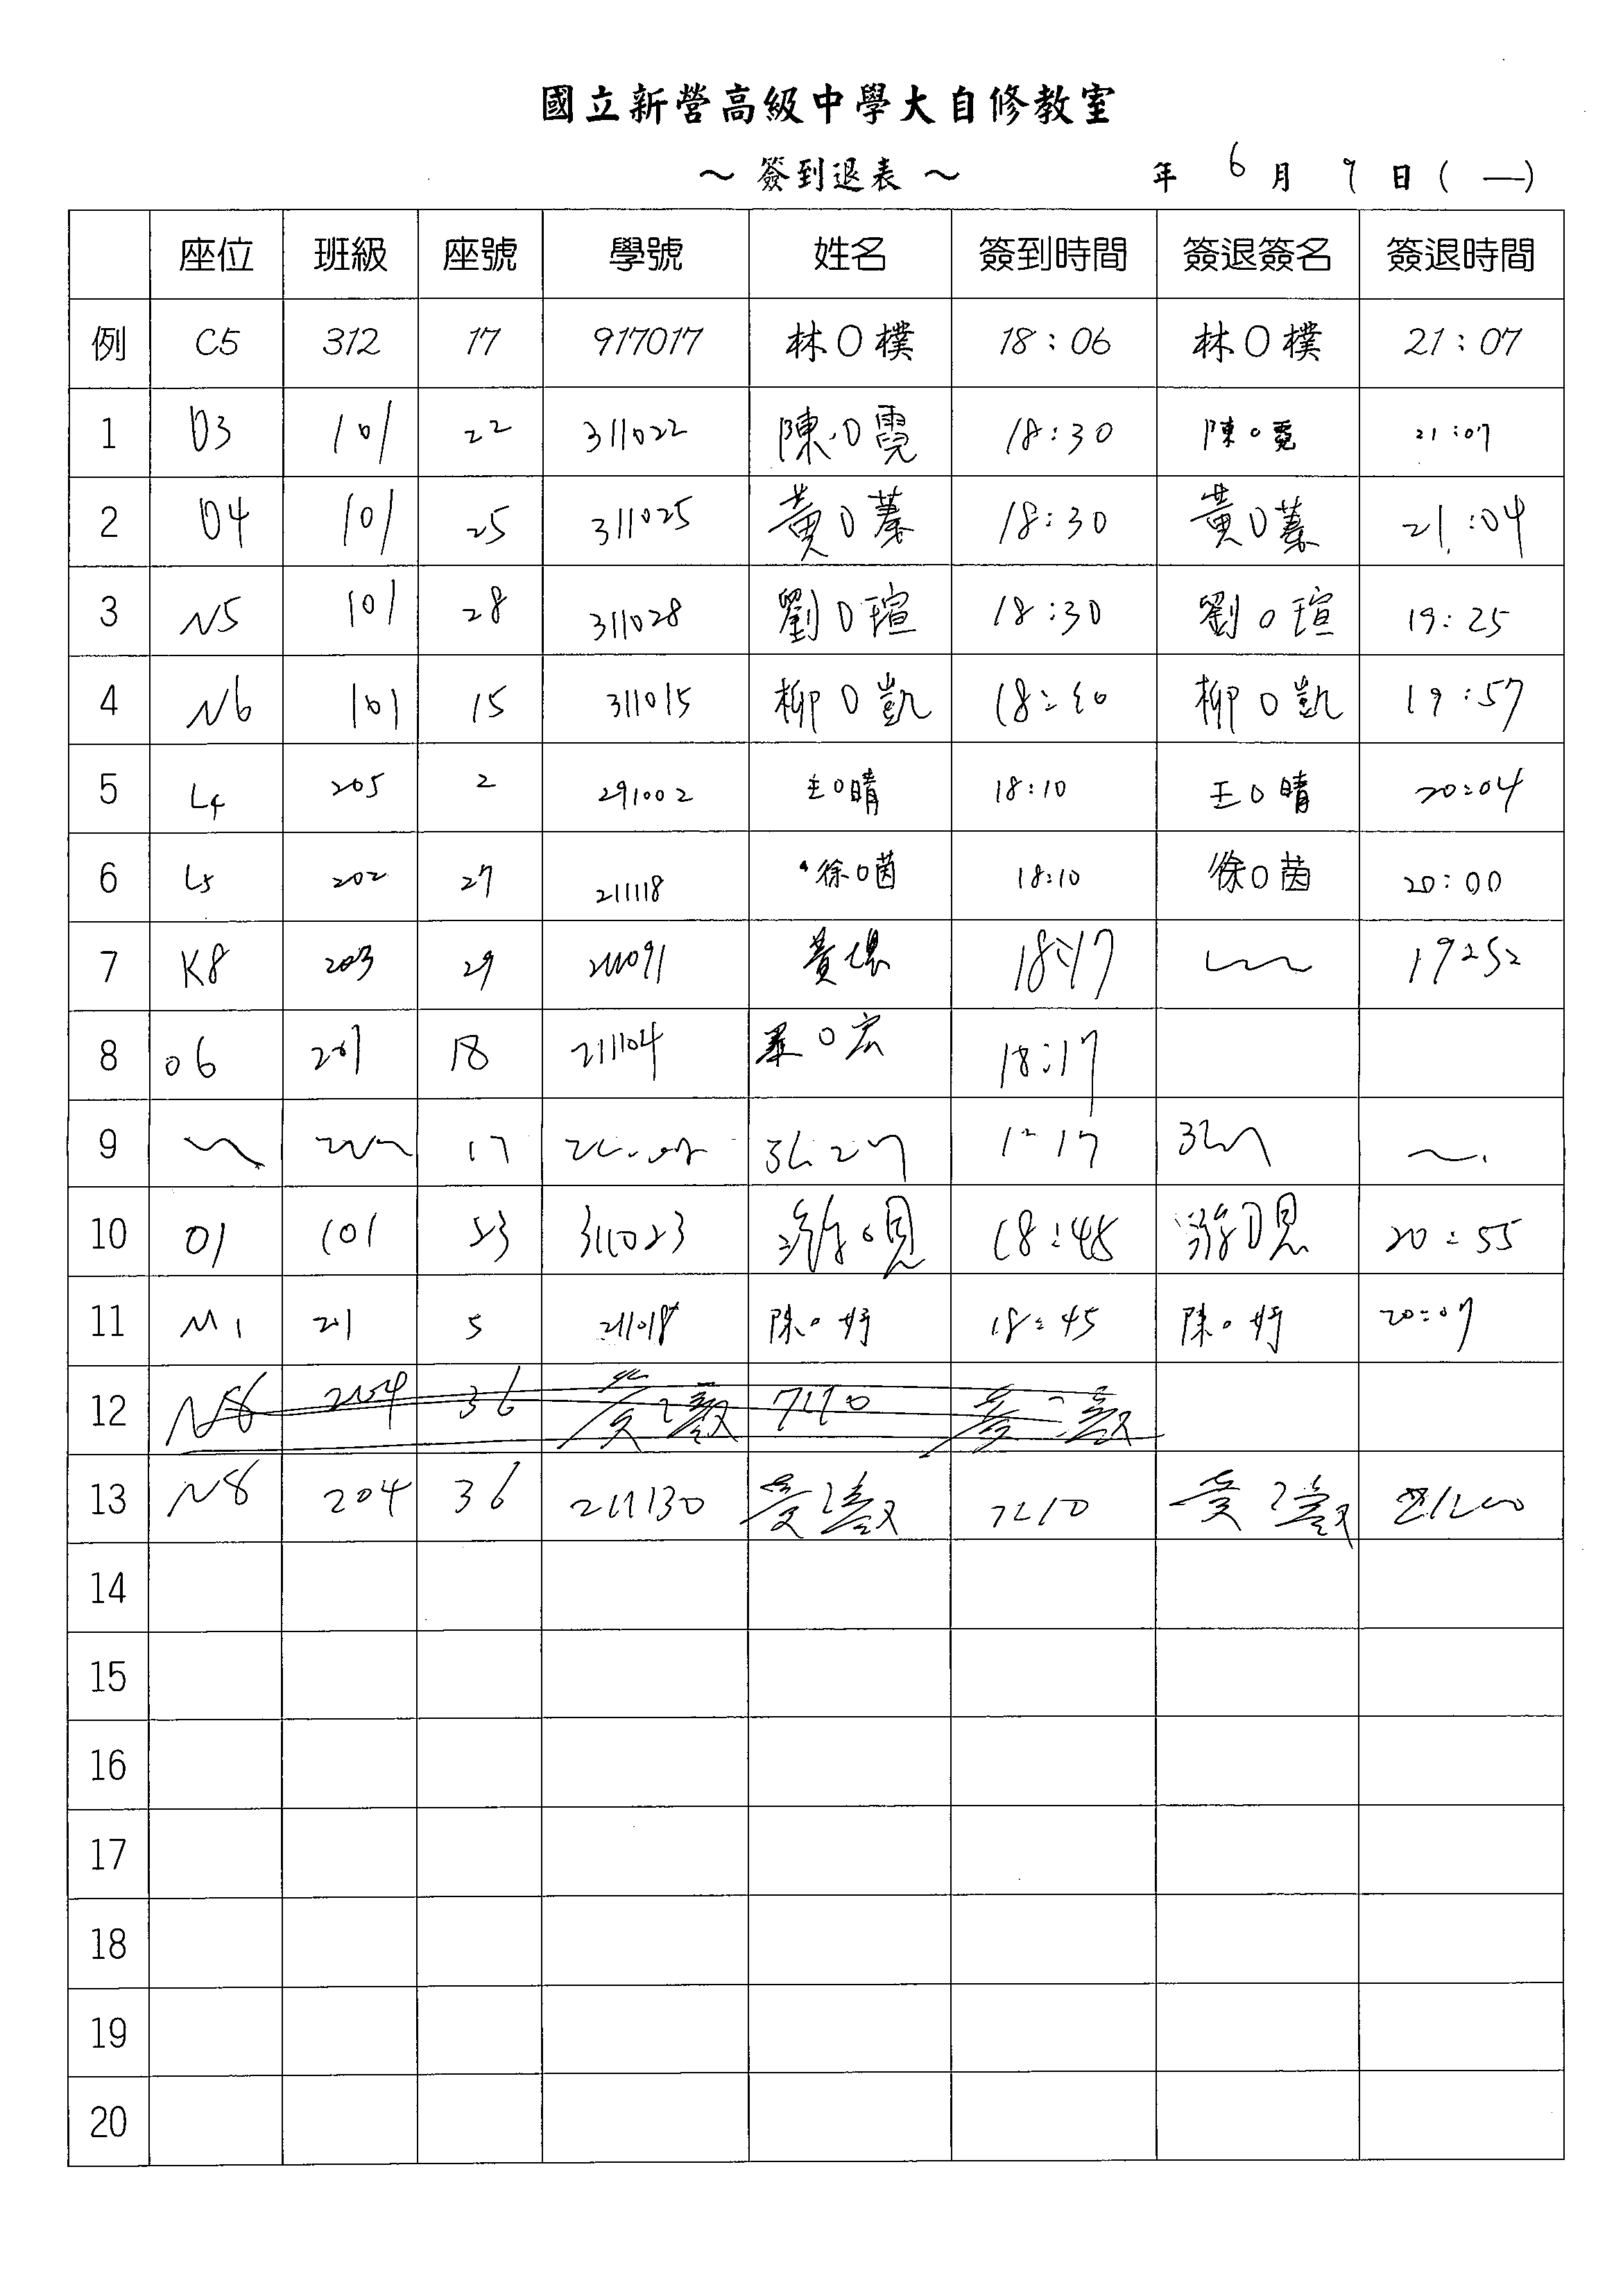 國立新營高級中學大自修教室
～ 簽到退表 ～ 年 6 月 9 日 ( 一 )
座位 班級 座號 學號 姓名 簽到時間 簽退簽名 簽退時間
例 C5 312 17 917017 林O樸 18:06 林O樸 21:07
1 D3 101 22 311022 陳O霓 18:30 陳O霓 21:07
2 D4 101 25 311025 黃O蓁 18:30 黃O蓁 21:04
3 N5 101 28 311028 劉O瑄 18:30 劉O瑄 19:25
4 N6 101 15 311015 柳O凱 柳O凱 19:57
5 L4 205 2 291002 王O晴 18:10 王O晴 20:04
6 L5 202 27 211118 徐O茵 18:10 徐O茵 20:00
7 K8 203 29 18:17 19:52
8 06 201 18 211104 O宏 18:17
9 17
10 01 101 23 311023 游O 18:45 游O 20:55
11 M1 201 5 211018 陳O妤 18:45 陳O妤 20:07
12 204 36
13 N8 204 36 211130
14
15
16
17
18
19
20